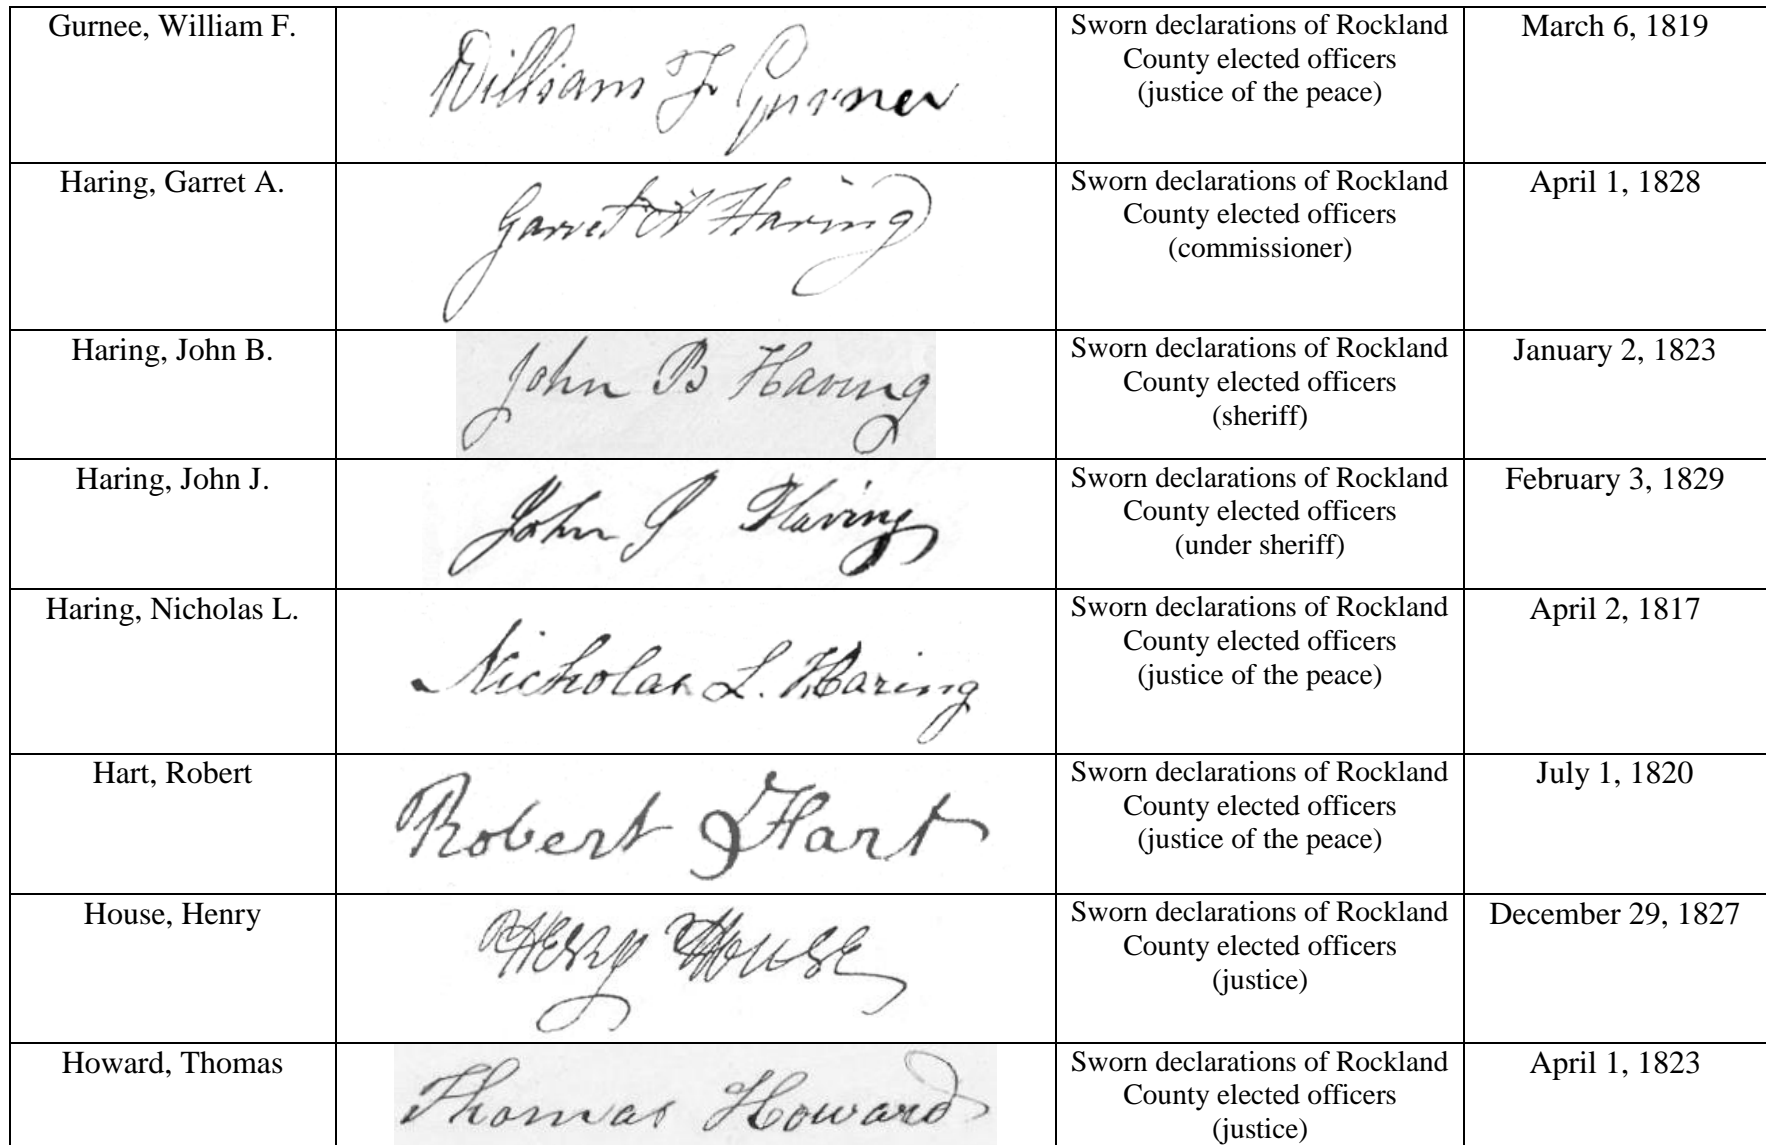 Gurnee, William F.
William F Gurnee
Sworn declarations of Rockland
County elected officers
(justice of the peace)
March 6, 1819
Haring, Garret A.
Garret A Haring
Sworn declarations of Rockland
County elected officers
(commissioner)
April 1, 1828
Haring, John B.
John B Haring
Sworn declarations of Rockland
County elected officers
(sheriff)
January 2, 1823
Haring, John J.
John J Haring
Sworn declarations of Rockland
County elected officers
(under sheriff)
February 3, 1829
Haring, Nicholas L.
Nicholas L. Haring
Sworn declarations of Rockland
County elected officers
(justice of the peace)
April 2, 1817
Hart, Robert
Robert Hart
Sworn declarations of Rockland
County elected officers
(justice of the peace)
July 1, 1820
House, Henry
Henry House
Sworn declarations of Rockland
County elected officers
(justice)
December 29, 1827
Howard, Thomas
Thomas Howard
Sworn declarations of Rockland
County elected officers
(justice)
April 1, 1823